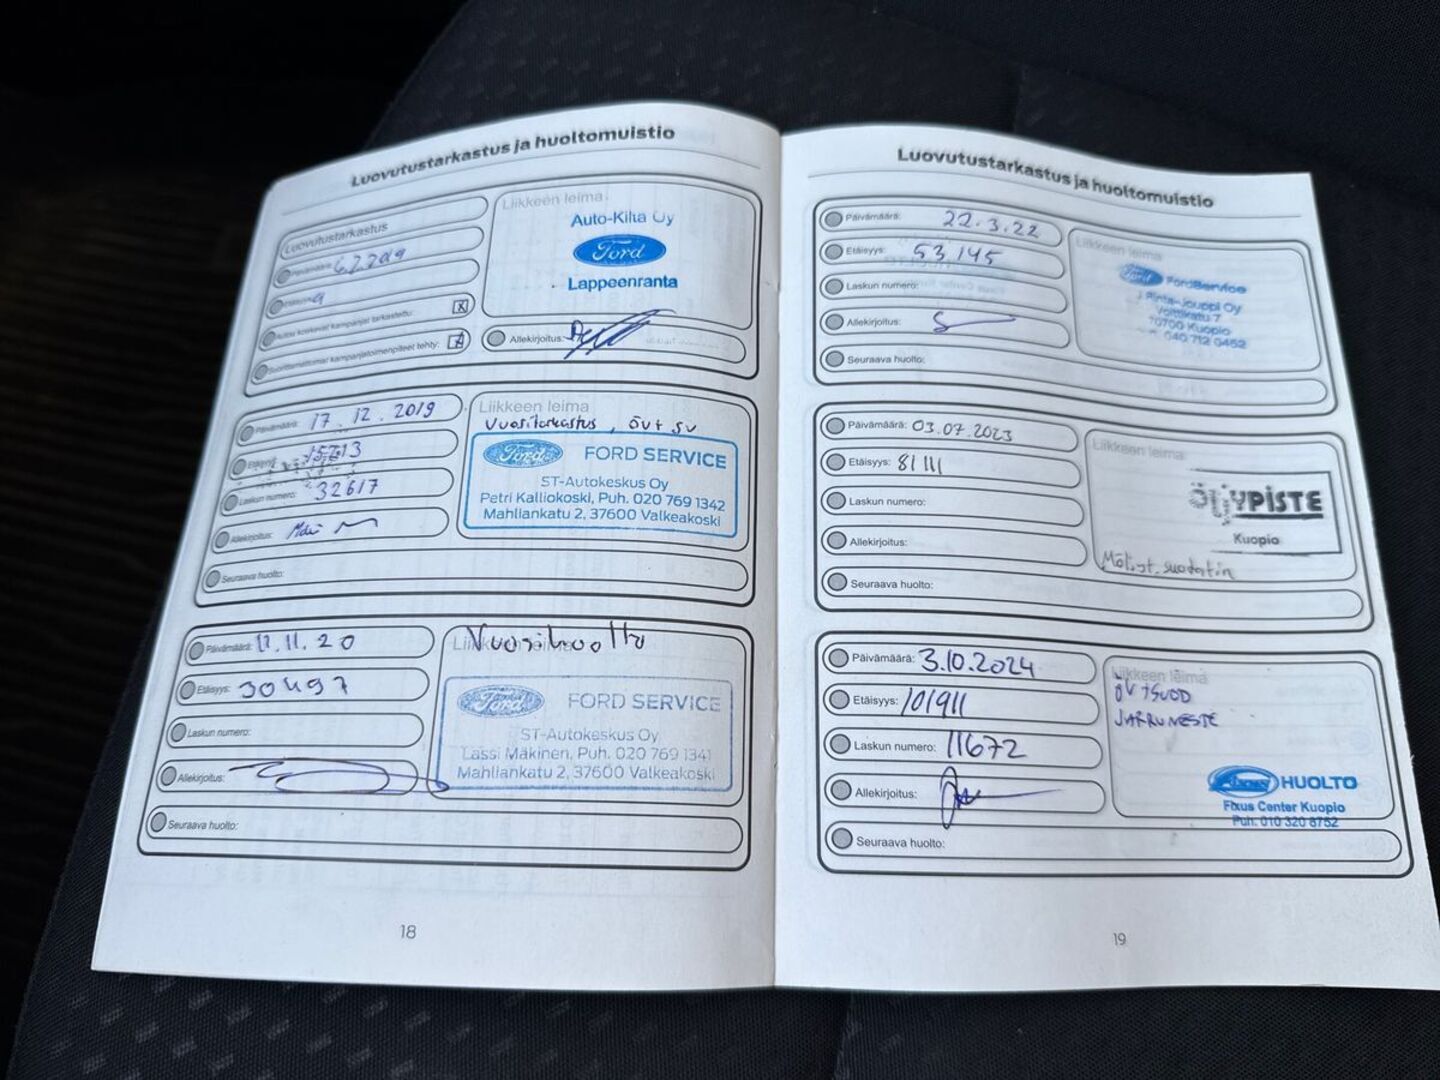 Luovutustarkastus ja huoltomuistio
Luovutustarkastus
Päivämäärä:
Autoa koskevat kampanjat tarkastettu: X
Suorittamattomat kampanjatoimenpiteet tehty:
Liikkeen leima
Auto-Kilta Oy
Ford
Lappeenranta
Allekirjoitus:
Päivämäärä: 17.12.2019
Etäisyys: 15213
Laskun numero: 32617
Allekirjoitus:
Seuraava huolto:
Liikkeen leima
Vuositarkastus, öv+su
Ford FORD SERVICE
ST-Autokeskus Oy
Petri Kalliokoski, Puh. 020 769 1342
Mahliankatu 2, 37600 Valkeakoski
Päivämäärä: 11.20
Etäisyys: 30497
Laskun numero:
Allekirjoitus:
Seuraava huolto:
Liikkeen leima
Vuosihuolto
Ford FORD SERVICE
ST-Autokeskus Oy
Lassi Mäkinen, Puh. 020 769 1341
Mahliankatu 2, 37600 Valkeakoski
18
Luovutustarkastus ja huoltomuistio
Päivämäärä: 22.3.22
Etäisyys: 53145
Laskun numero:
Allekirjoitus:
Seuraava huolto:
Liikkeen leima
Ford FordService
J. Rinta-Jouppi Oy
Volttikatu 7
70700 Kuopio
040 712 0452
Päivämäärä: 03.07.2023
Etäisyys: 81111
Laskun numero:
Allekirjoitus:
Seuraava huolto:
Liikkeen leima
ÖLJYPISTE
Kuopio
Päivämäärä: 3.10.2024
Etäisyys: 101911
Laskun numero: 11672
Allekirjoitus:
Seuraava huolto:
Liikkeen leima
ÖV+SUOD
JARRUNESTE
HUOLTO
Fixus Center Kuopio
Puh. 010 320 8752
19